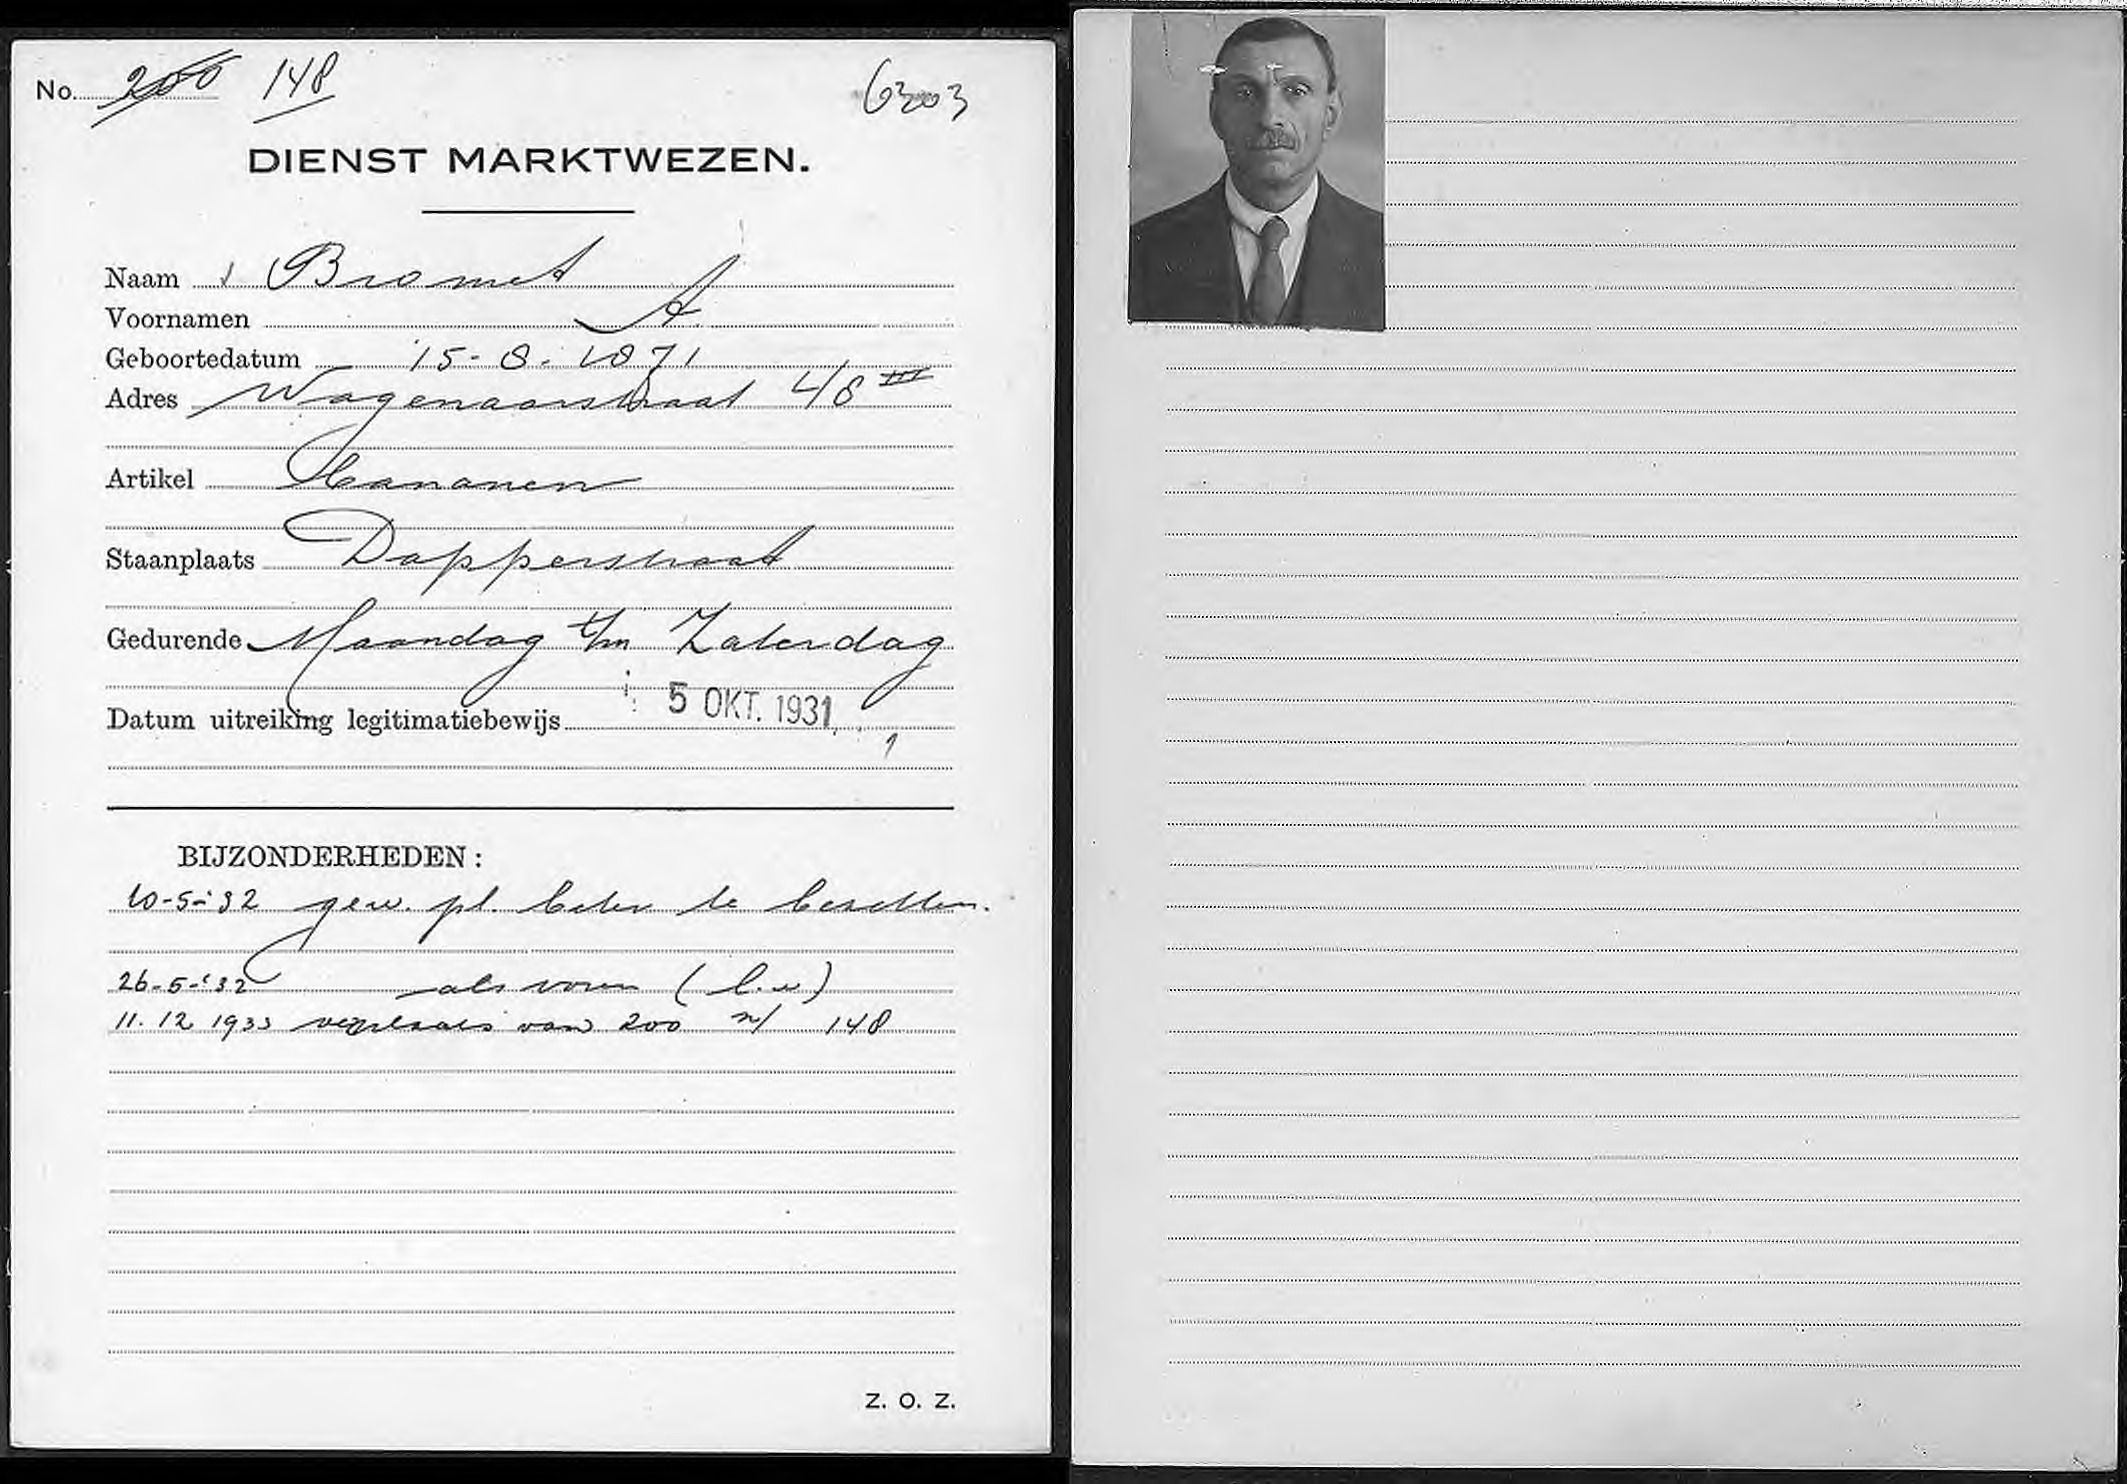 No. 200 148 6303
DIENST MARKTWEZEN.
Naam Bromet
Voornamen A.
Geboortedatum 15-8-1871
Adres Wagenaarstraat 48 III
Artikel Bananen
Staanplaats Dapperstraat
Gedurende Maandag t/m Zaterdag
Datum uitreiking legitimatiebewijs 5 OKT. 1931
BIJZONDERHEDEN:
10-5-'32 gew. pl. beter te bezetten.
26-5-'32 als voren
11.12 1933 verplaats van 200 n/ 148
Z. O. Z.